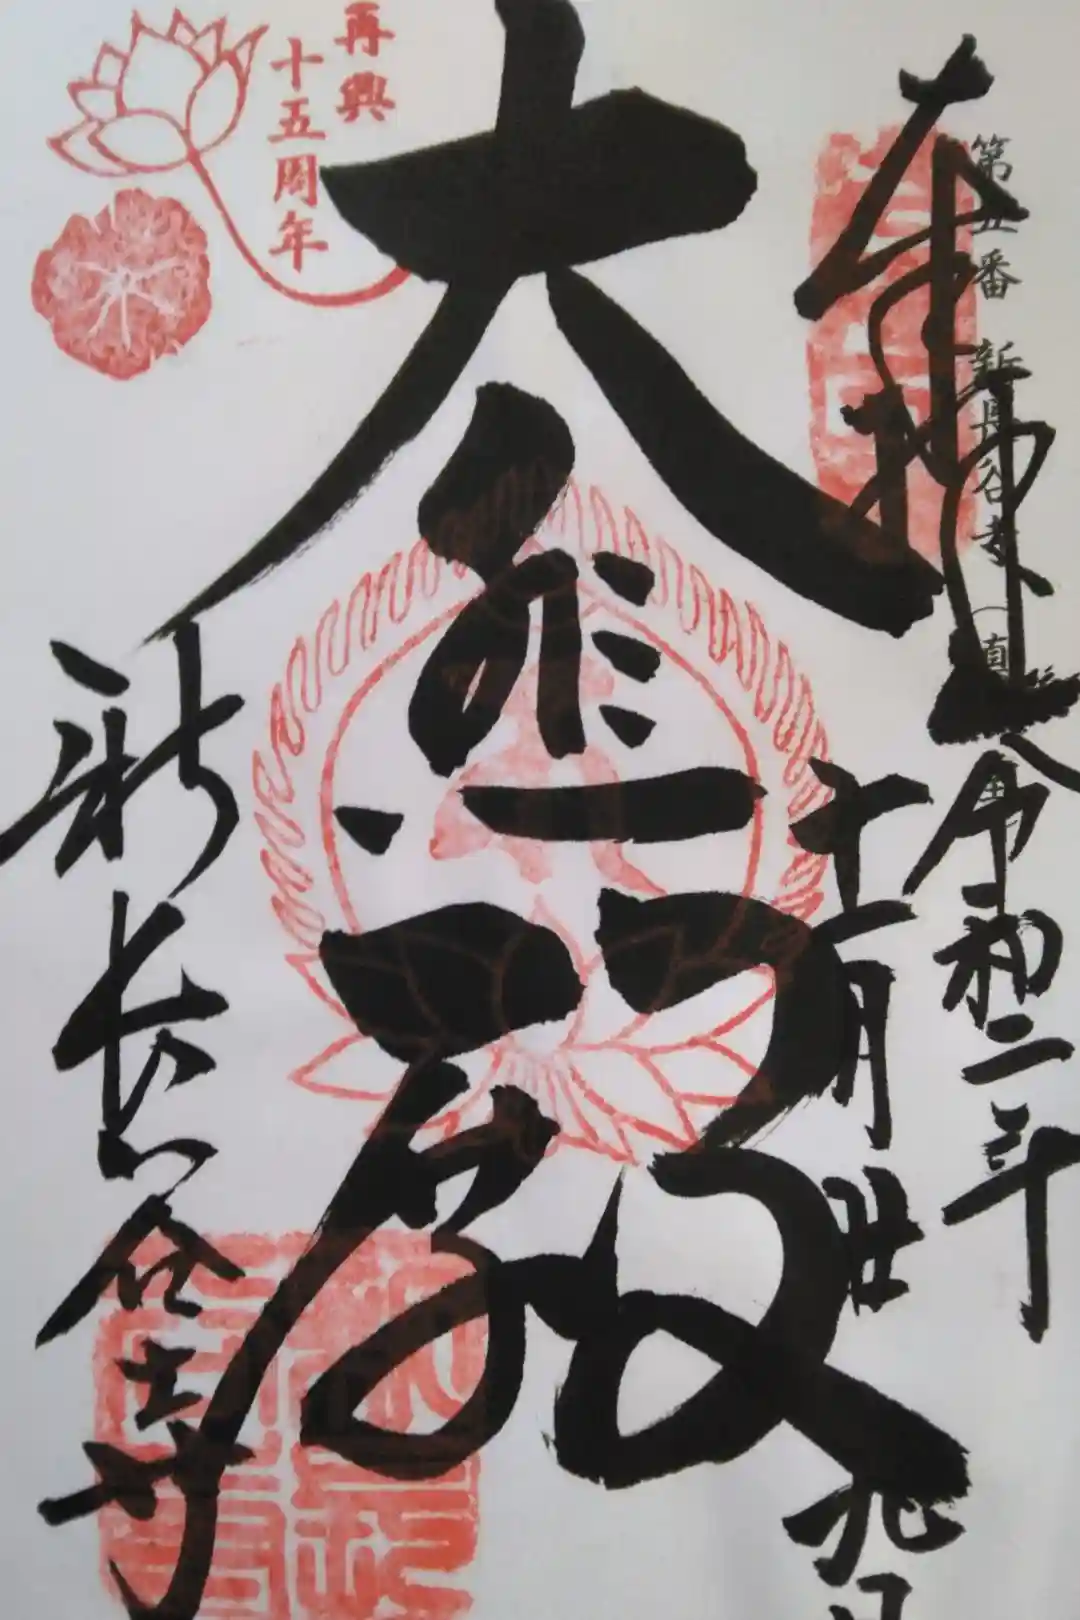 奉拝
第五番 新長谷寺
令和二年
十一月廿九日
大悲殿
再興
十五周年
新長谷寺